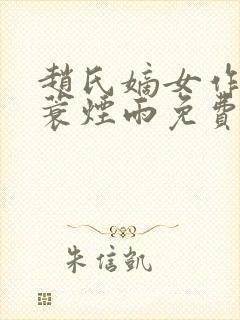 趙氏嫡女作
蓑煙雨免費
朱信凱